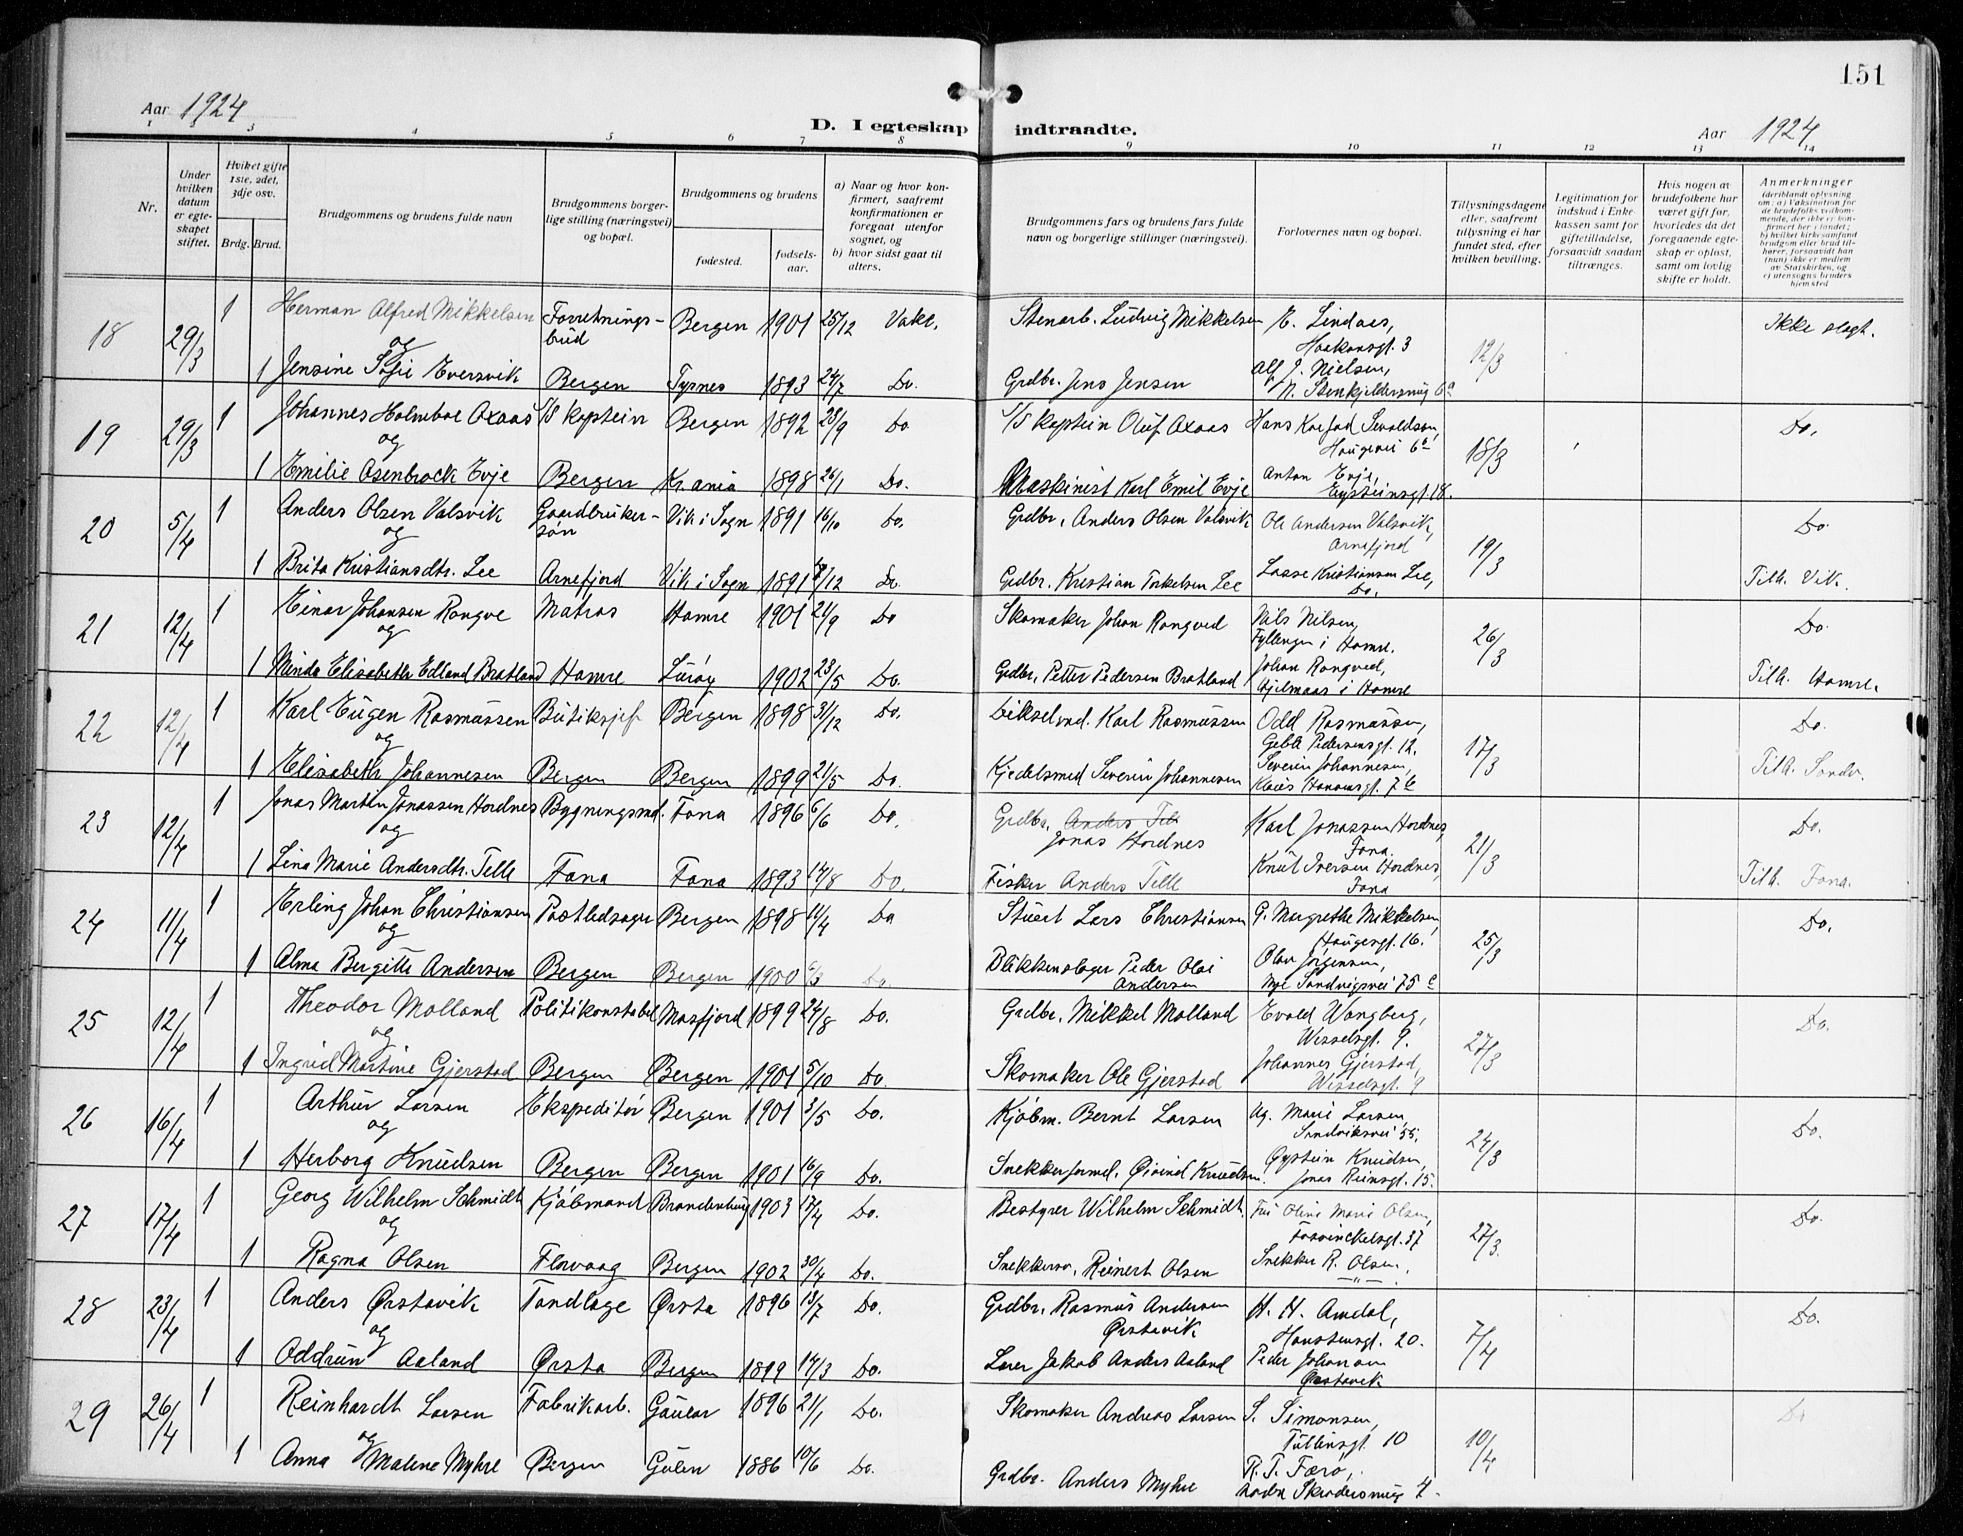 151
Aar 1924
D. I egteskap indtraadte.
Aar 1924
1 2 3 4 5 6 7 8 9 10 11 12 13 14
Nr.
Under hvilken datum er egteskapet stiftet.
Hvilket gifte 1ste, 2det, 3dje osv.
Brdg. Brud.
Brudgommens og brudens fulde navn
Brudgommens borgerlige stilling (næringsvei) og bopæl.
Brudgommens og brudens
fødested. fødselsaar.
a) Naar og hvor konfirmert, saafremt konfirmationen er foregaat utenfor sognet, og
b) hvor sidst gaat til alters.
Brudgommens fars og brudens fars fulde navn og borgerlige stillinger (næringsvei).
Forlovernes navn og bopæl.
Tillysningsdagene eller, saafremt tillysning ei har fundet sted, efter hvilken bevilling.
Legitimation for indskud i Enkekassen samt for giftetilladelse, forsaavidt saadan tiltrænges.
Hvis nogen av brudefolkene har været gift før, hvorledes da det foregaaende egteskap er opløst, samt om lovlig skifte er holdt.
Anmerkninger
18 29/3 1 Herman Alfred Mikkelsen Forretningsbud Bergen 1901 25/12 Vakc. Stenarb. Ludvig Mikkelsen E. Lindaas, Haakonsgt. 3 12/3 Ikke slegt.
og
1 Jensine Sofie Eversvik Bergen Tysnes 1893 24/7 Do. Grdbr. Jens Jensen Alf J. Nielsen, N. Stenkjeldersmug 6a
19 29/3 1 Johannes Holmboe Axaas S/S kaptein Bergen 1892 23/9 Do S/S kaptein Oluf Axaas Hans Sevaldsen, Haugevei 18/3 Do.
og
1 Emilie Osenbrock Evje Bergen Kr.ania 1898 26/1 Do. Maskinist Karl Emil Evje Anton Evje, Eysteinsgt. 18.
20 5/4 1 Anders Olsen Valsvik Gaardbrukersøn Vik i Sogn 1891 16/10 Do. Grdbr. Anders Olsen Valsvik Ole Andersen Valsvik, Arnefjord 19/3 Do.
og
1 Brita Kristiansdtr. Lee Arnefjord Vik i Sogn 1891 /12 Do. Grdbr. Kristian Torkelsen Lee Lasse Kristiansen Lee, Do. Tilh. Vik.
21 12/4 1 Einar Johansen Rongve Matros Hamre 1901 21/9 Do Skomaker Johan Rongved Nils Nilsen, Fyllingen i Hamre. 26/3 Do.
og
1 Minda Elisabeth Edland Bratland Hamre Lurøy 1902 23/5 Do. Grdbr. Petter Pedersen Bratland Johan Rongved, Hjelmaas i Hamre Tilh. Hamre.
22 12/4 1 Karl Eugen Rasmussen Butiksjef Bergen 1898 31/12 Do. Karl Rasmussen Odd Rasmussen, Geble Pedersensgt. 12. 17/3 Do.
og
1 Elisabeth Johannesen Bergen Bergen 1899 21/5 Do. Kjedelsmed Severin Johannesen Severin Johannesen, Tilh. Sandv.
23 12/4 1 Jonas Martin Jonassen Hordnes Bygningssnd. Fana 1896 6/6 Do. Grdbr. Jonas Hordnes Karl Jonassen Hordnes, Fana. 21/3 Do.
og
1 Lina Marie Andersdtr. Telle Fana Fana 1893 14/8 Do. Fisker Anders Telle Knut Iversen Hordnes, Fana Tilh. Fana.
24 11/4 1 Erling Johan Christiansen Postledsager Bergen 1898 11/4 Do Stuert Lars Christiansen G. Margrethe Mikkelsen, Haugesgt. 16. 25/3 Do.
og
1 Alma Bergitte Andersen Bergen Bergen 1900 6/3 Do Blikkenslager Peder Olai Andersen Olav Jørgensen, Nye Sandvigsvei 75 c
25 12/4 1 Theodor Molland Politikonstabel Masfjord 1899 24/8 Do. Grdbr. Mikkel Molland Evald Wangberg, Wesselsgt. 9. 27/3 Do.
og
1 Ingrid Martine Gjerstad Bergen Bergen 1901 5/10 Do. Skomaker Ole Gjerstad Johannes Gjerstad, Wesselsgt. 9
26 16/4 1 Arthur Larsen Ekspeditør Bergen 1901 3/5 Do. Kjøbm. Bernt Larsen Marie Larsen, Sandviksvei 55. 24/3 Do.
og
1 Herborg Knudsen Bergen Bergen 1901 16/9 Do. Snekkerformd. Øivind Knudsen. Øystein Knudsen, Jonas Reinsgt. 15.
27 17/4 1 Georg Wilhelm Schmidt Kjøbmand Brandenburg 1903 17/4 Do. Bestyrer Wilhelm Schmidt. Fru Oline Marie Olsen, Fosswinckelsgt. 37 27/3. Do.
og
1 Ragna Olsen Florvaag Bergen 1902 30/4 Do. Snekkersv. Reinert Olsen Snekker R. Olsen. — " —
28 23/4 1 Anders Ørstavik Tandlæge Ørsta 1896 13/7 Do. Grdbr. Rasmus Andersen Ørstavik H. H. Amdal, Hansteensgt. 20. 7/4 Do.
og
1 Oddrun Aaland Ørsta Bergen 1899 14/3 Do. Lærer Jakob Anders Aaland Peder Johan Ørstavik
29 26/4 1 Reinhardt Larsen Fabrikarb. Gaular 1896 21/1 Do. Skomaker Andreas Larsen S. Simonsen, Tullinsgt. 10 10/4 Do
og
1 Anna Malene Myhre Bergen Gulen 1886 10/6 Do. Grdbr. Anders Myhre R. T. Færø, Skrædersmug 4.